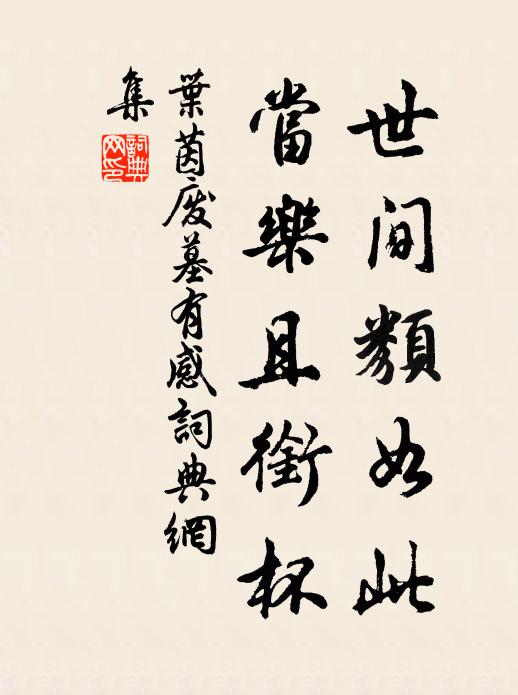 世间類如此
當樂且銜杯
葉茵廢墓有感詞典網
集
詞典
网印